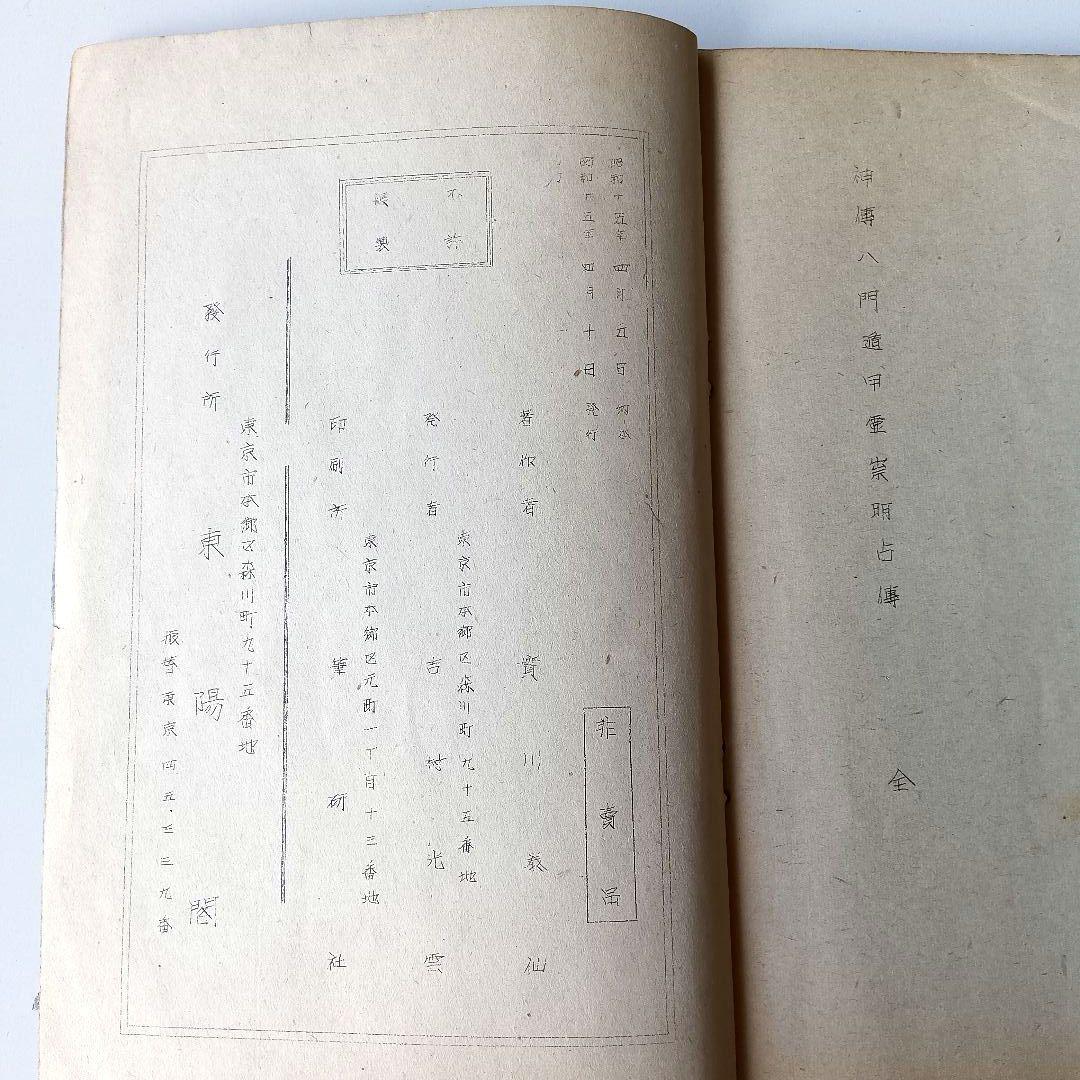 神傳八門遁甲霊崇明占傳 全
昭和十五年四月五日 印本
昭和十五年四月十日 発行
非賣品
不許
複製
著作者 賀川泰仙
東京市本郷区森川町九十五番地
発行者 吉村光雲
東京市本郷区元町一丁目十三番地
印刷所 筆研社
東京市本郷区森川町九十五番地
發行所 東陽閣
振替東京四五・三三九番